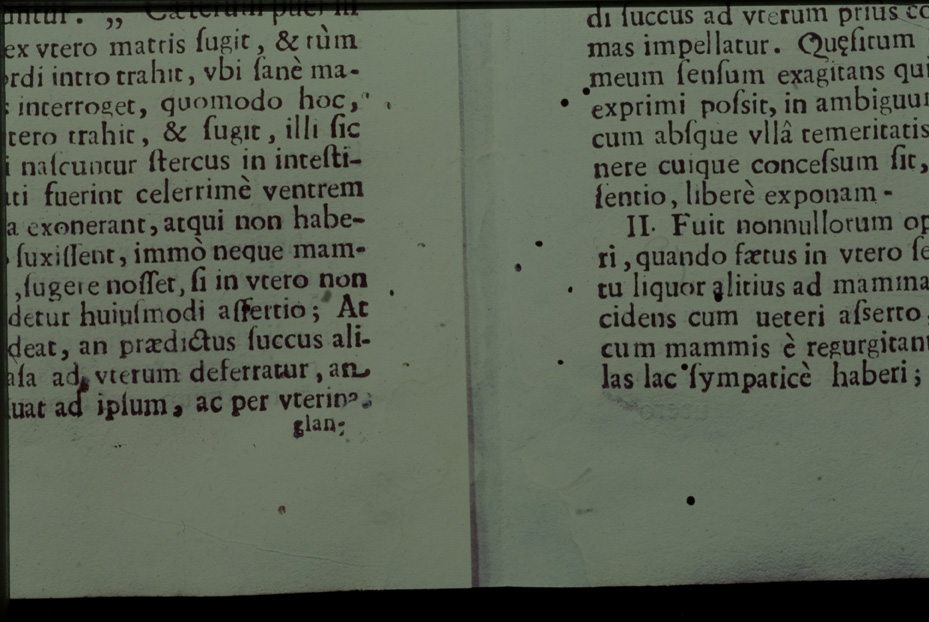 untur. „ Cæterum pueri in
ex vtero matris ſugit, & tùm
ordi intro trahit, vbi ſanè ma-
interroget, quomodo hoc,
tero trahit, & ſugit, illi ſic
i naſcuntur ſtercus in inteſti-
ti fuerint celerrimè ventrem
a exonerant, atqui non habe-
ſuxiſſent, immò neque mam-
, ſugere noſſet, ſi in vtero non
detur huiuſmodi aſſertio; At
deat, an prædictus ſuccus ali-
àſa ad vterum deferratur, an
luat ad ipſum, ac per vterin
glan-
di ſuccus ad vterum prius co
mas impellatur. Quęſitum
meum ſenſum exagitans qui
exprimi poſsit, in ambiguu
cum abſque vllâ temeritatis
nere cuique conceſsum ſit,
ſentio, liberè exponam-
II. Fuit nonnullorum op
ri, quando fætus in vtero ſe
tu liquor alitius ad mamma
cidens cum ueteri aſserto,
cum mammis è regurgitant
las lac ſympaticè haberi;